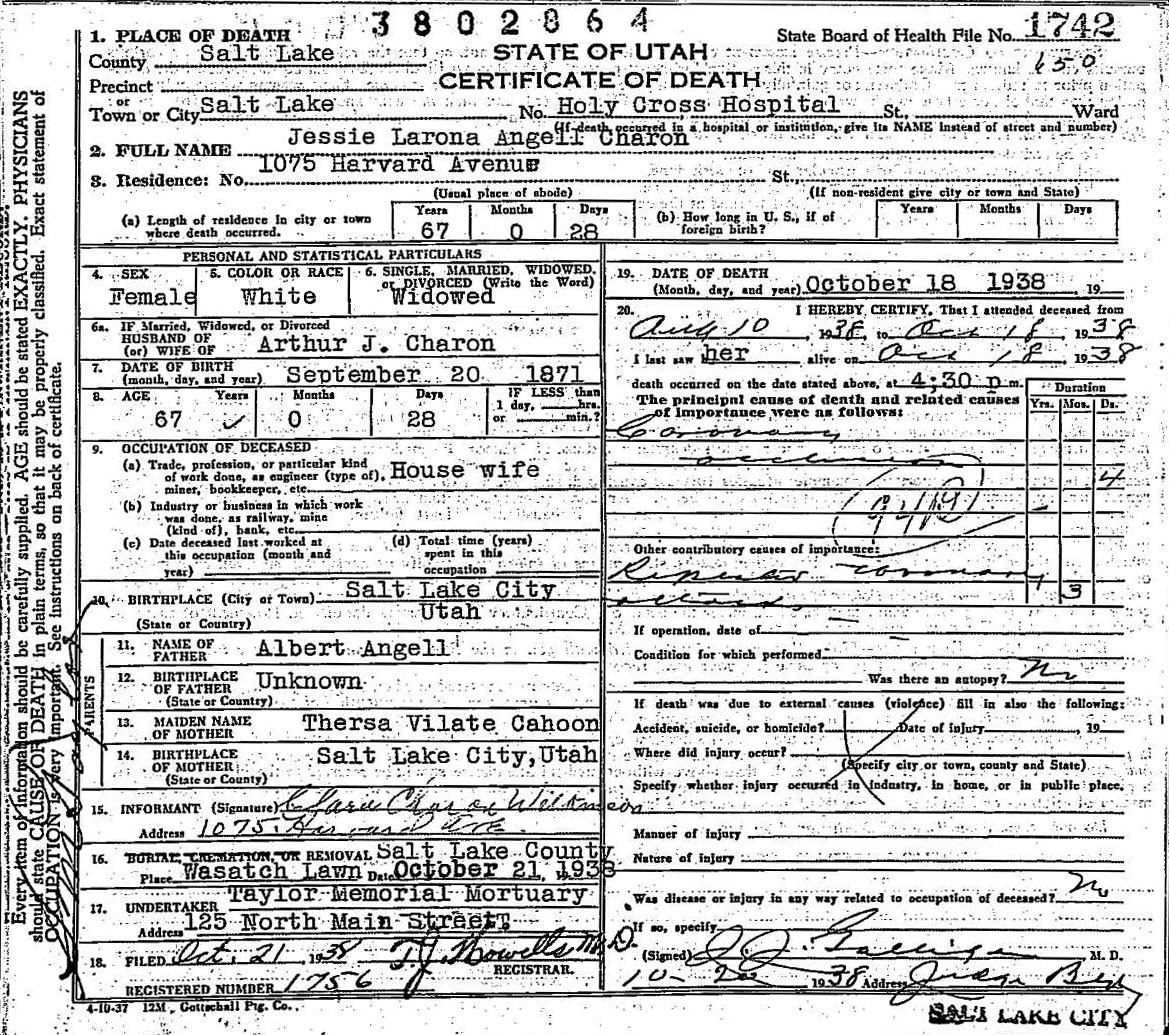 3802864
1. PLACE OF DEATH
State Board of Health File No. 1742
County Salt Lake
STATE OF UTAH
150
Precinct
CERTIFICATE OF DEATH
or
Town or City Salt Lake No. Holy Cross Hospital St., Ward
(If death occurred in a hospital or institution, give its NAME instead of street and number)
2. FULL NAME Jessie Larona Angell Charon
3. Residence: No. 1075 Harvard Avenue St.,
(Usual place of abode) (If non-resident give city or town and State)
(a) Length of residence in city or town where death occurred. Years 67 Months 0 Days 28
(b) How long in U. S., if of foreign birth? Years Months Days
PERSONAL AND STATISTICAL PARTICULARS
4. SEX Female
5. COLOR OR RACE White
6. SINGLE, MARRIED, WIDOWED, or DIVORCED (Write the Word) Widowed
6a. IF Married, Widowed, or Divorced
HUSBAND OF
(or) WIFE OF Arthur J. Charon
7. DATE OF BIRTH
(month, day, and year) September 20 1871
8. AGE Years 67 Months 0 Days 28 IF LESS than 1 day, hrs. or min.?
9. OCCUPATION OF DECEASED
(a) Trade, profession, or particular kind
of work done, as engineer (type of), House wife
miner, bookkeeper, etc.
(b) Industry or business in which work
was done, as railway, mine
(kind of), bank, etc.
(c) Date deceased last worked at
this occupation (month and
year)
(d) Total time (years)
spent in this
occupation
10. BIRTHPLACE (City or Town) Salt Lake City
(State or Country) Utah
PARENTS
11. NAME OF FATHER Albert Angell
12. BIRTHPLACE OF FATHER Unknown
(State or Country)
13. MAIDEN NAME OF MOTHER Thersa Vilate Cahoon
14. BIRTHPLACE OF MOTHER Salt Lake City, Utah
(State or County)
15. INFORMANT (Signature) Clara Charon Wilkinson
Address 1075 Harvard Ave
16. BURIAL, CREMATION, OR REMOVAL Salt Lake County
Place Wasatch Lawn Date October 21, 1938
17. UNDERTAKER Taylor Memorial Mortuary
Address 125 North Main Street
18. FILED Oct. 21 1938 T.J. Howells M.D.
REGISTRAR.
REGISTERED NUMBER 1756
4-10-37 12M, Gottschall Ptg. Co.
19. DATE OF DEATH
(Month, day, and year) October 18 1938 19
20. I HEREBY CERTIFY, That I attended deceased from
Aug 10, 1938, to Oct 18, 1938
I last saw her alive on Oct 18, 1938
death occurred on the date stated above, at 4;30 p m.
The principal cause of death and related causes
of importance were as follows:
Duration
Yrs. Mos. Ds.
Coronary
occlusion 4
Other contributory causes of importance:
Repeated coronary
attacks 3
If operation, date of
Condition for which performed
Was there an autopsy? No
If death was due to external causes (violence) fill in also the following:
Accident, suicide, or homicide? Date of injury , 19
Where did injury occur?
(Specify city or town, county and State)
Specify whether injury occurred in industry, in home, or in public place.
Manner of injury
Nature of injury
Was disease or injury in any way related to occupation of deceased? No
If so, specify
(Signed) M. D.
10-20 1938 Address Judge Bldg
SALT LAKE CITY
Every item of information should be carefully supplied. AGE should be stated EXACTLY. PHYSICIANS
should state CAUSE OF DEATH in plain terms, so that it may be properly classified. Exact statement of
OCCUPATION is very important. See instructions on back of certificate.